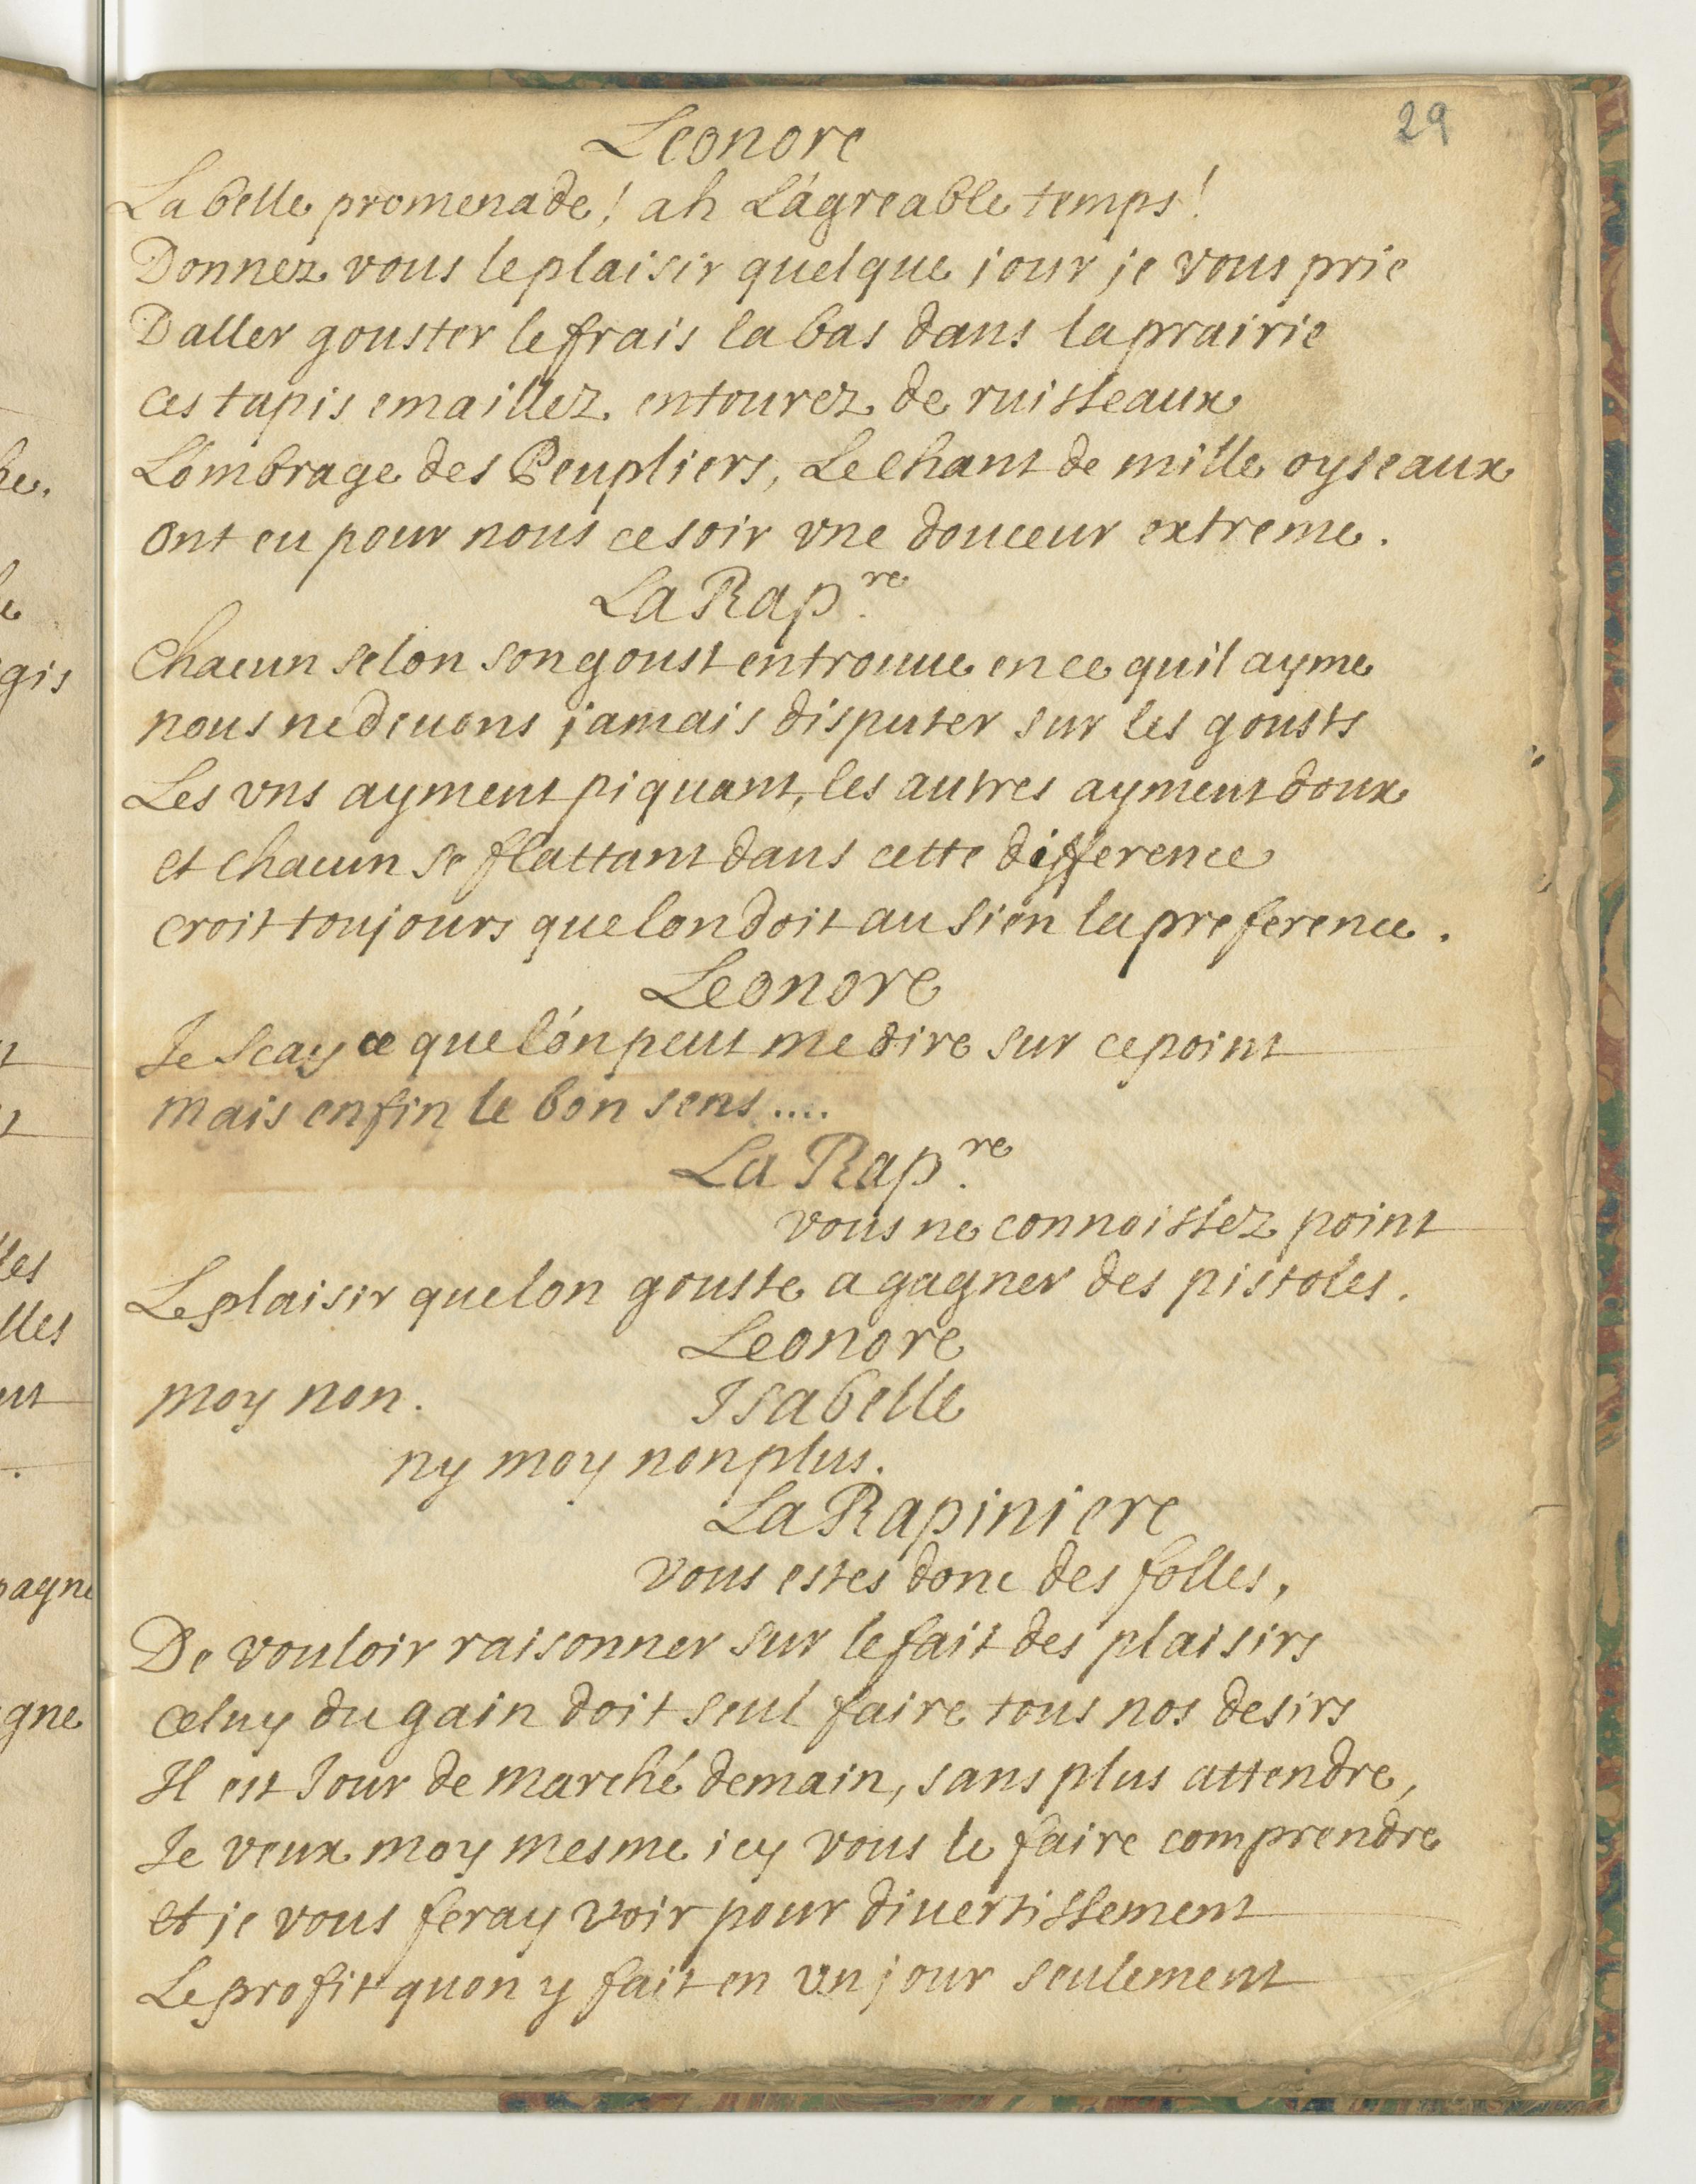 29
Leonore
La belle promenade! ah L'agreable temps!
Donnez vous le plaisir quelque jour je vous prie
D aller gouster le frais la bas dans la prairie
ces tapis emaillez entourez de ruisseaux
L'ombrage des Peupliers, Le chant de mille oyseaux
ont eu pour nous ce soir vne douceur extreme.
La Rap.re
Chacun selon son goust en trouue en ce quil ayme
nous ne deuons jamais disputer sur les gousts
Les vns ayment piquant, les autres ayment doux
et chacun se flattant dans cette difference
croit toujours que lon doit au sien la preference.
Leonore
Je scay ce que l'on peut me dire sur ce point
mais enfin le bon sens....
La Rap.re
vous ne connoissez point
Le plaisir que lon gouste a gagner des pistoles.
Leonore
moy non.
Isabelle
ny moy non plus.
La Rapiniere
vous estes donc des folles,
De vouloir raisonner sur le fait des plaisirs
celuy du gain doit seul faire tous nos desirs
Il est Jour de marché demain, sans plus attendre,
Je veux moy mesme icy vous le faire comprendre
et je vous feray voir pour diuertissement
Le profit quon y fait en vn jour seulement
he.
gis
lles
pagne
gne